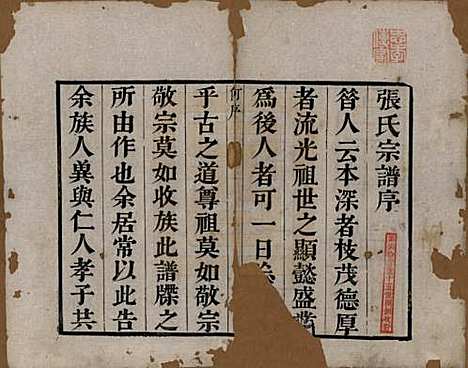 張氏宗譜序
昝人云本深者枝茂德厚
者流光祖世之顯懿盛
為後人者可一日
何序
乎古之道尊祖莫如敬宗
敬宗莫如收族此譜牒之
所由作也余居常以此告
余族人冀與仁人孝子共